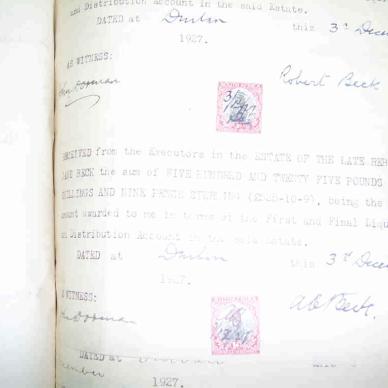 and Distribution Account in the said Estate.
DATED at Durban this 3rd Decem
1927.
AS WITNESS:
Robert Beck
RECEIVED from the Executors in the ESTATE OF THE LATE REB
JANE BECK the sum of FIVE HUNDRED AND TWENTY FIVE POUNDS
SHILLINGS AND NINE PENCE STERLING (£525-10-9), being the
amount awarded to me in terms of the First and Final Liqu
and Distribution Account in the said Estate.
DATED at Durban this 3rd Decem
1927.
AS WITNESS:
A E Beck.
DATED at
1927.